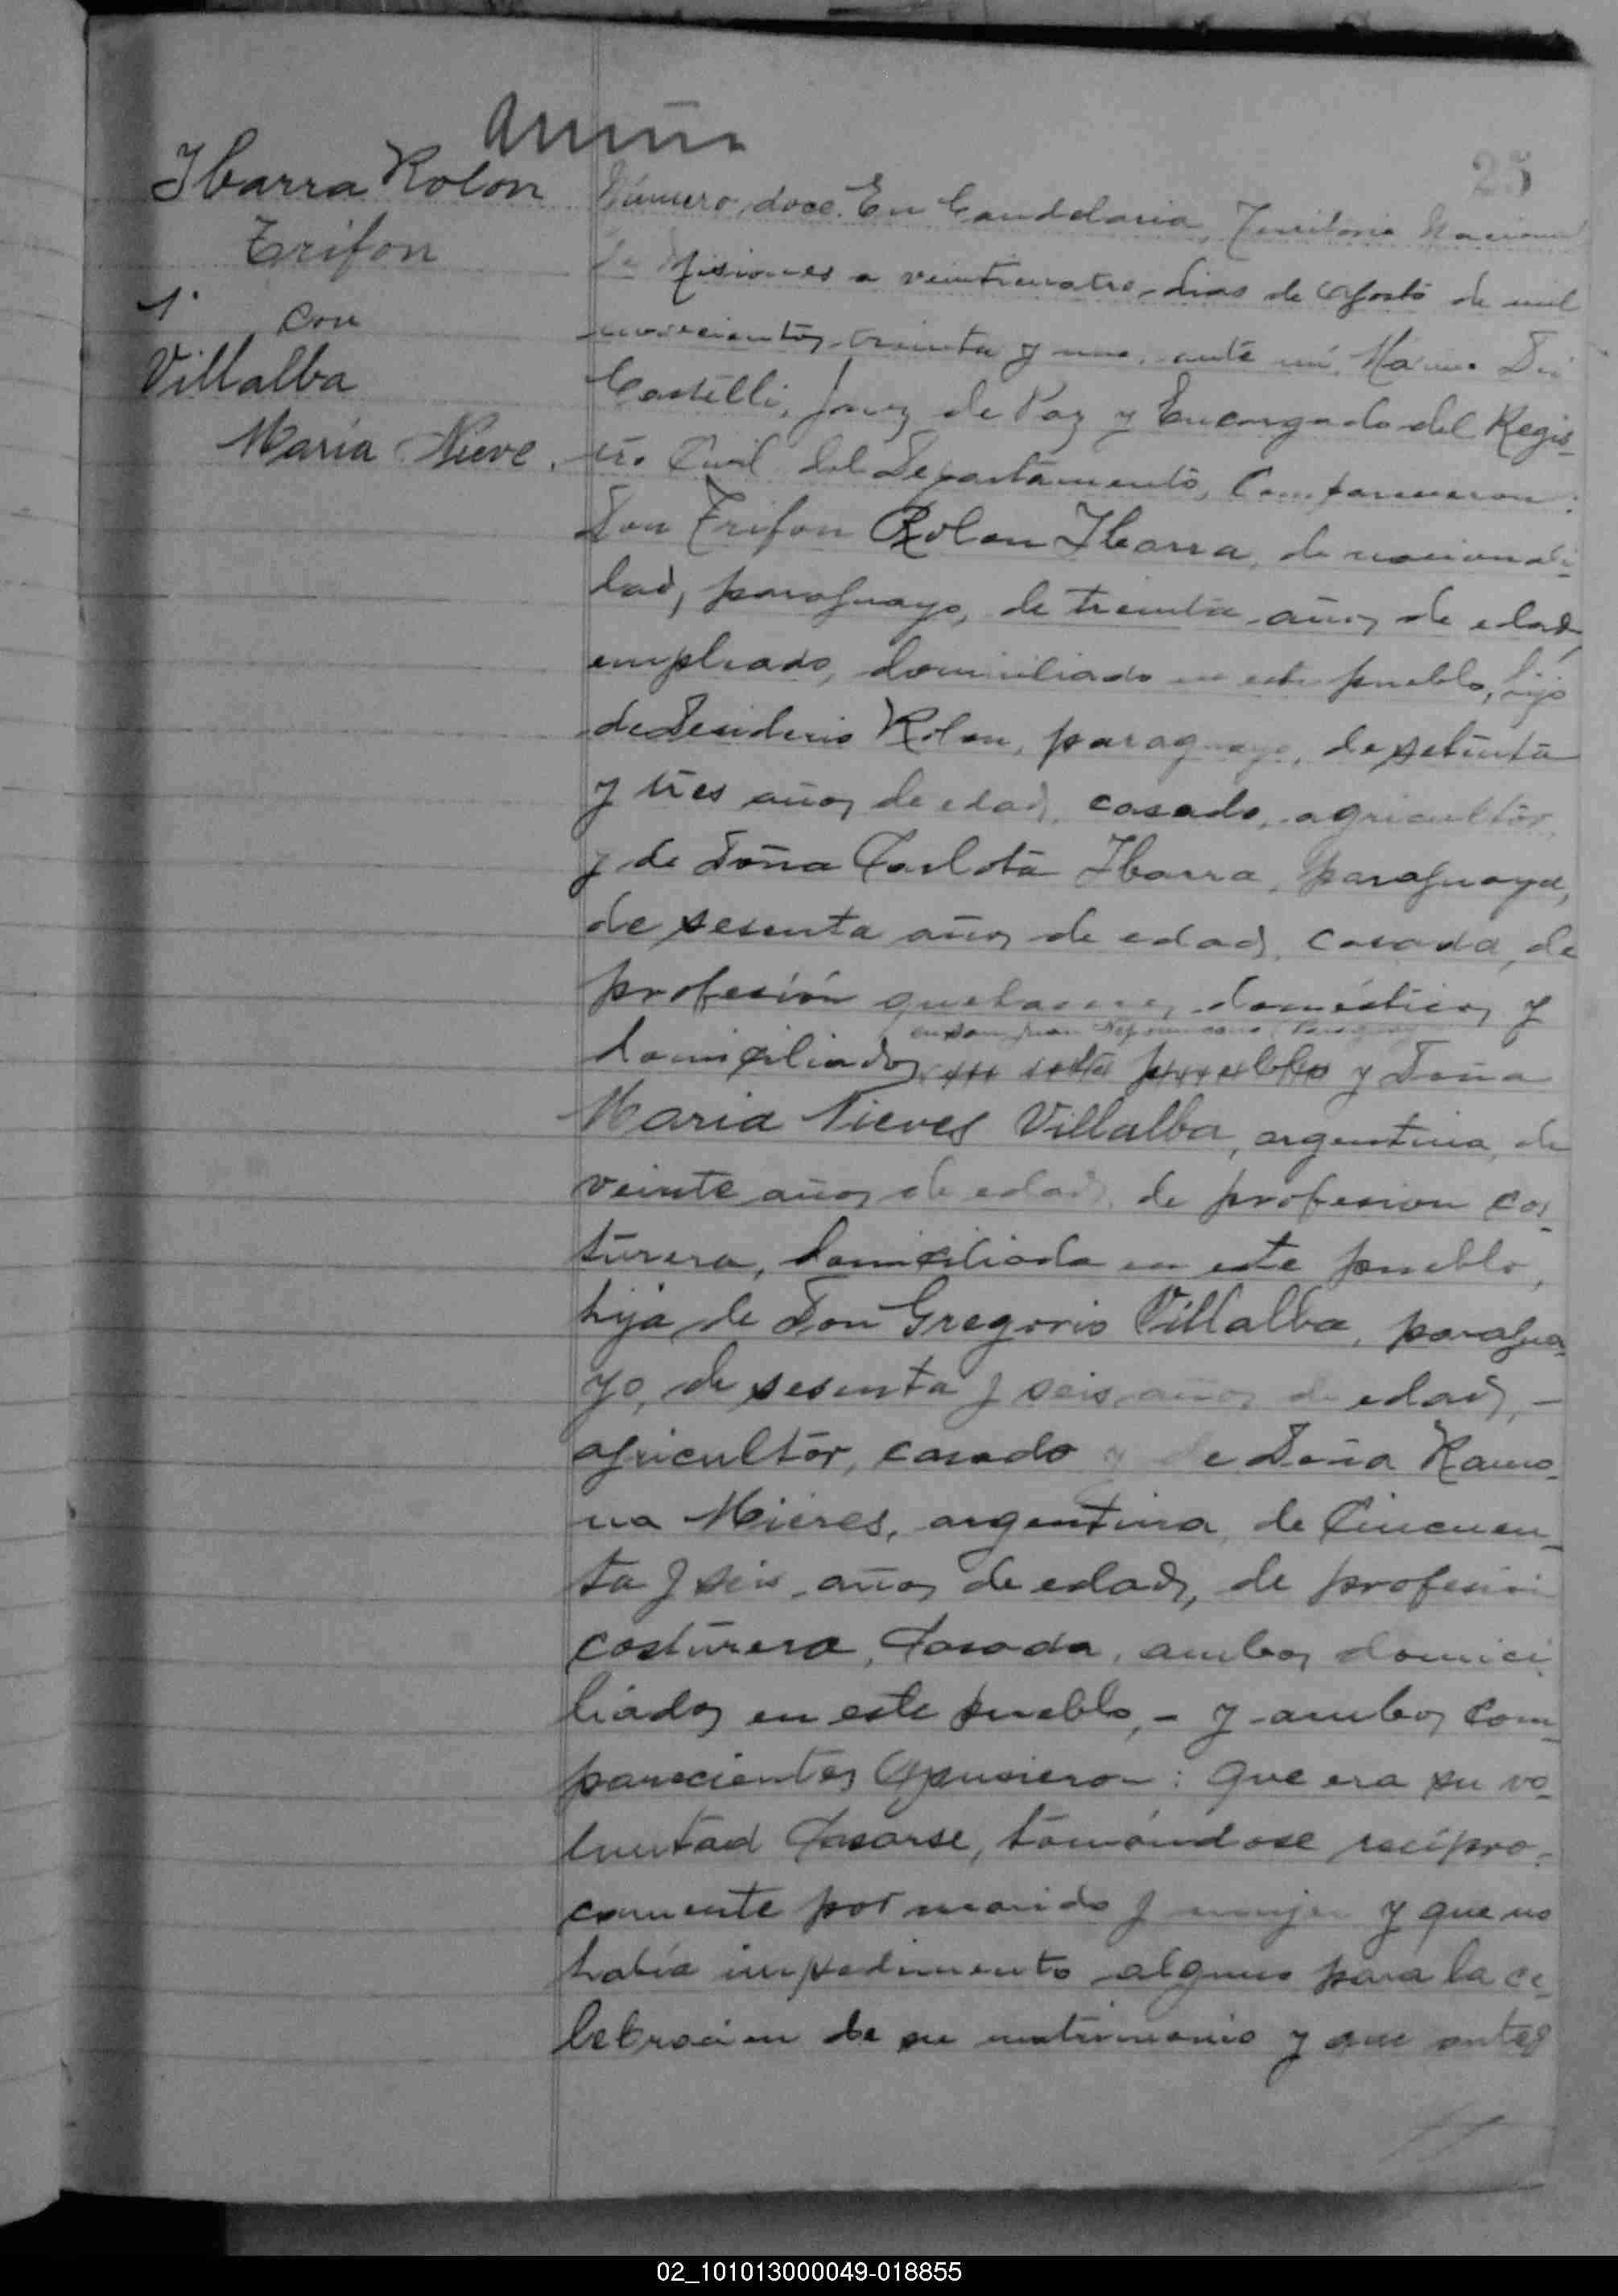 25
Ibarra Rolon
Trifon
1º con
Villalba
Maria Nieve.
Número doce. En Candelaria, Territorio Nacional
de Misiones a veinticuatro dias de Agosto de mil
novecientos treinta y uno, ante mí,
Castelli, Juez de Paz y Encargado del Regis-
tro Civil del Departamento, Comparecieron:
Don Trifon Rolon Ibarra, de nacionali-
dad, paraguayo, de treinta años de edad,
empleado, domiciliado en este pueblo, hijo
de Desiderio Rolon, paraguayo, de setenta
y tres años de edad, casado, agricultor,
y de Doña Carlota Ibarra, paraguaya,
de sesenta años de edad, casada, de
profesión quehaceres domésticos y
en San Juan Nepomuceno (Paraguay)
domiciliados en este pueblo y Doña
Maria Nieves Villalba, argentina, de
veinte años de edad, de profesion cos-
turera, domiciliada en este pueblo,
hija de Don Gregorio Villalba, paragua-
yo, de sesenta y seis años de edad, -
agricultor, casado y de Doña Ramo-
na Mieres, argentina, de Cincuen-
ta y seis años de edad, de profesión
costurera, Casada, ambos domici-
liados en este pueblo, - y ambos Com-
parecientes Expusieron: Que era su vo-
luntad Casarse, tomándose recípro-
camente por marido y mujer y que no
había impedimento alguno para la ce-
lebracion de su matrimonio y que antes
02_101013000049-018855